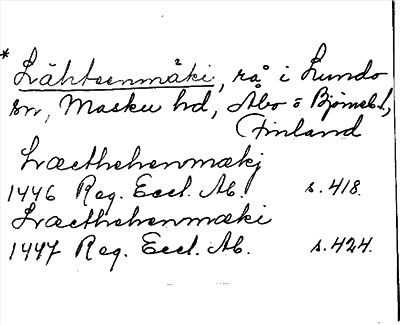 * Lähtsenmäki, rå i Lundo
sn, Masku hd, Åbo o Björneb.l,
(Finland
Læcthshenmækj
1446 Reg. Eccl. Ab. s. 418.
Læcthshenmæki
1447 Reg. Eccl. Ab. s. 424.